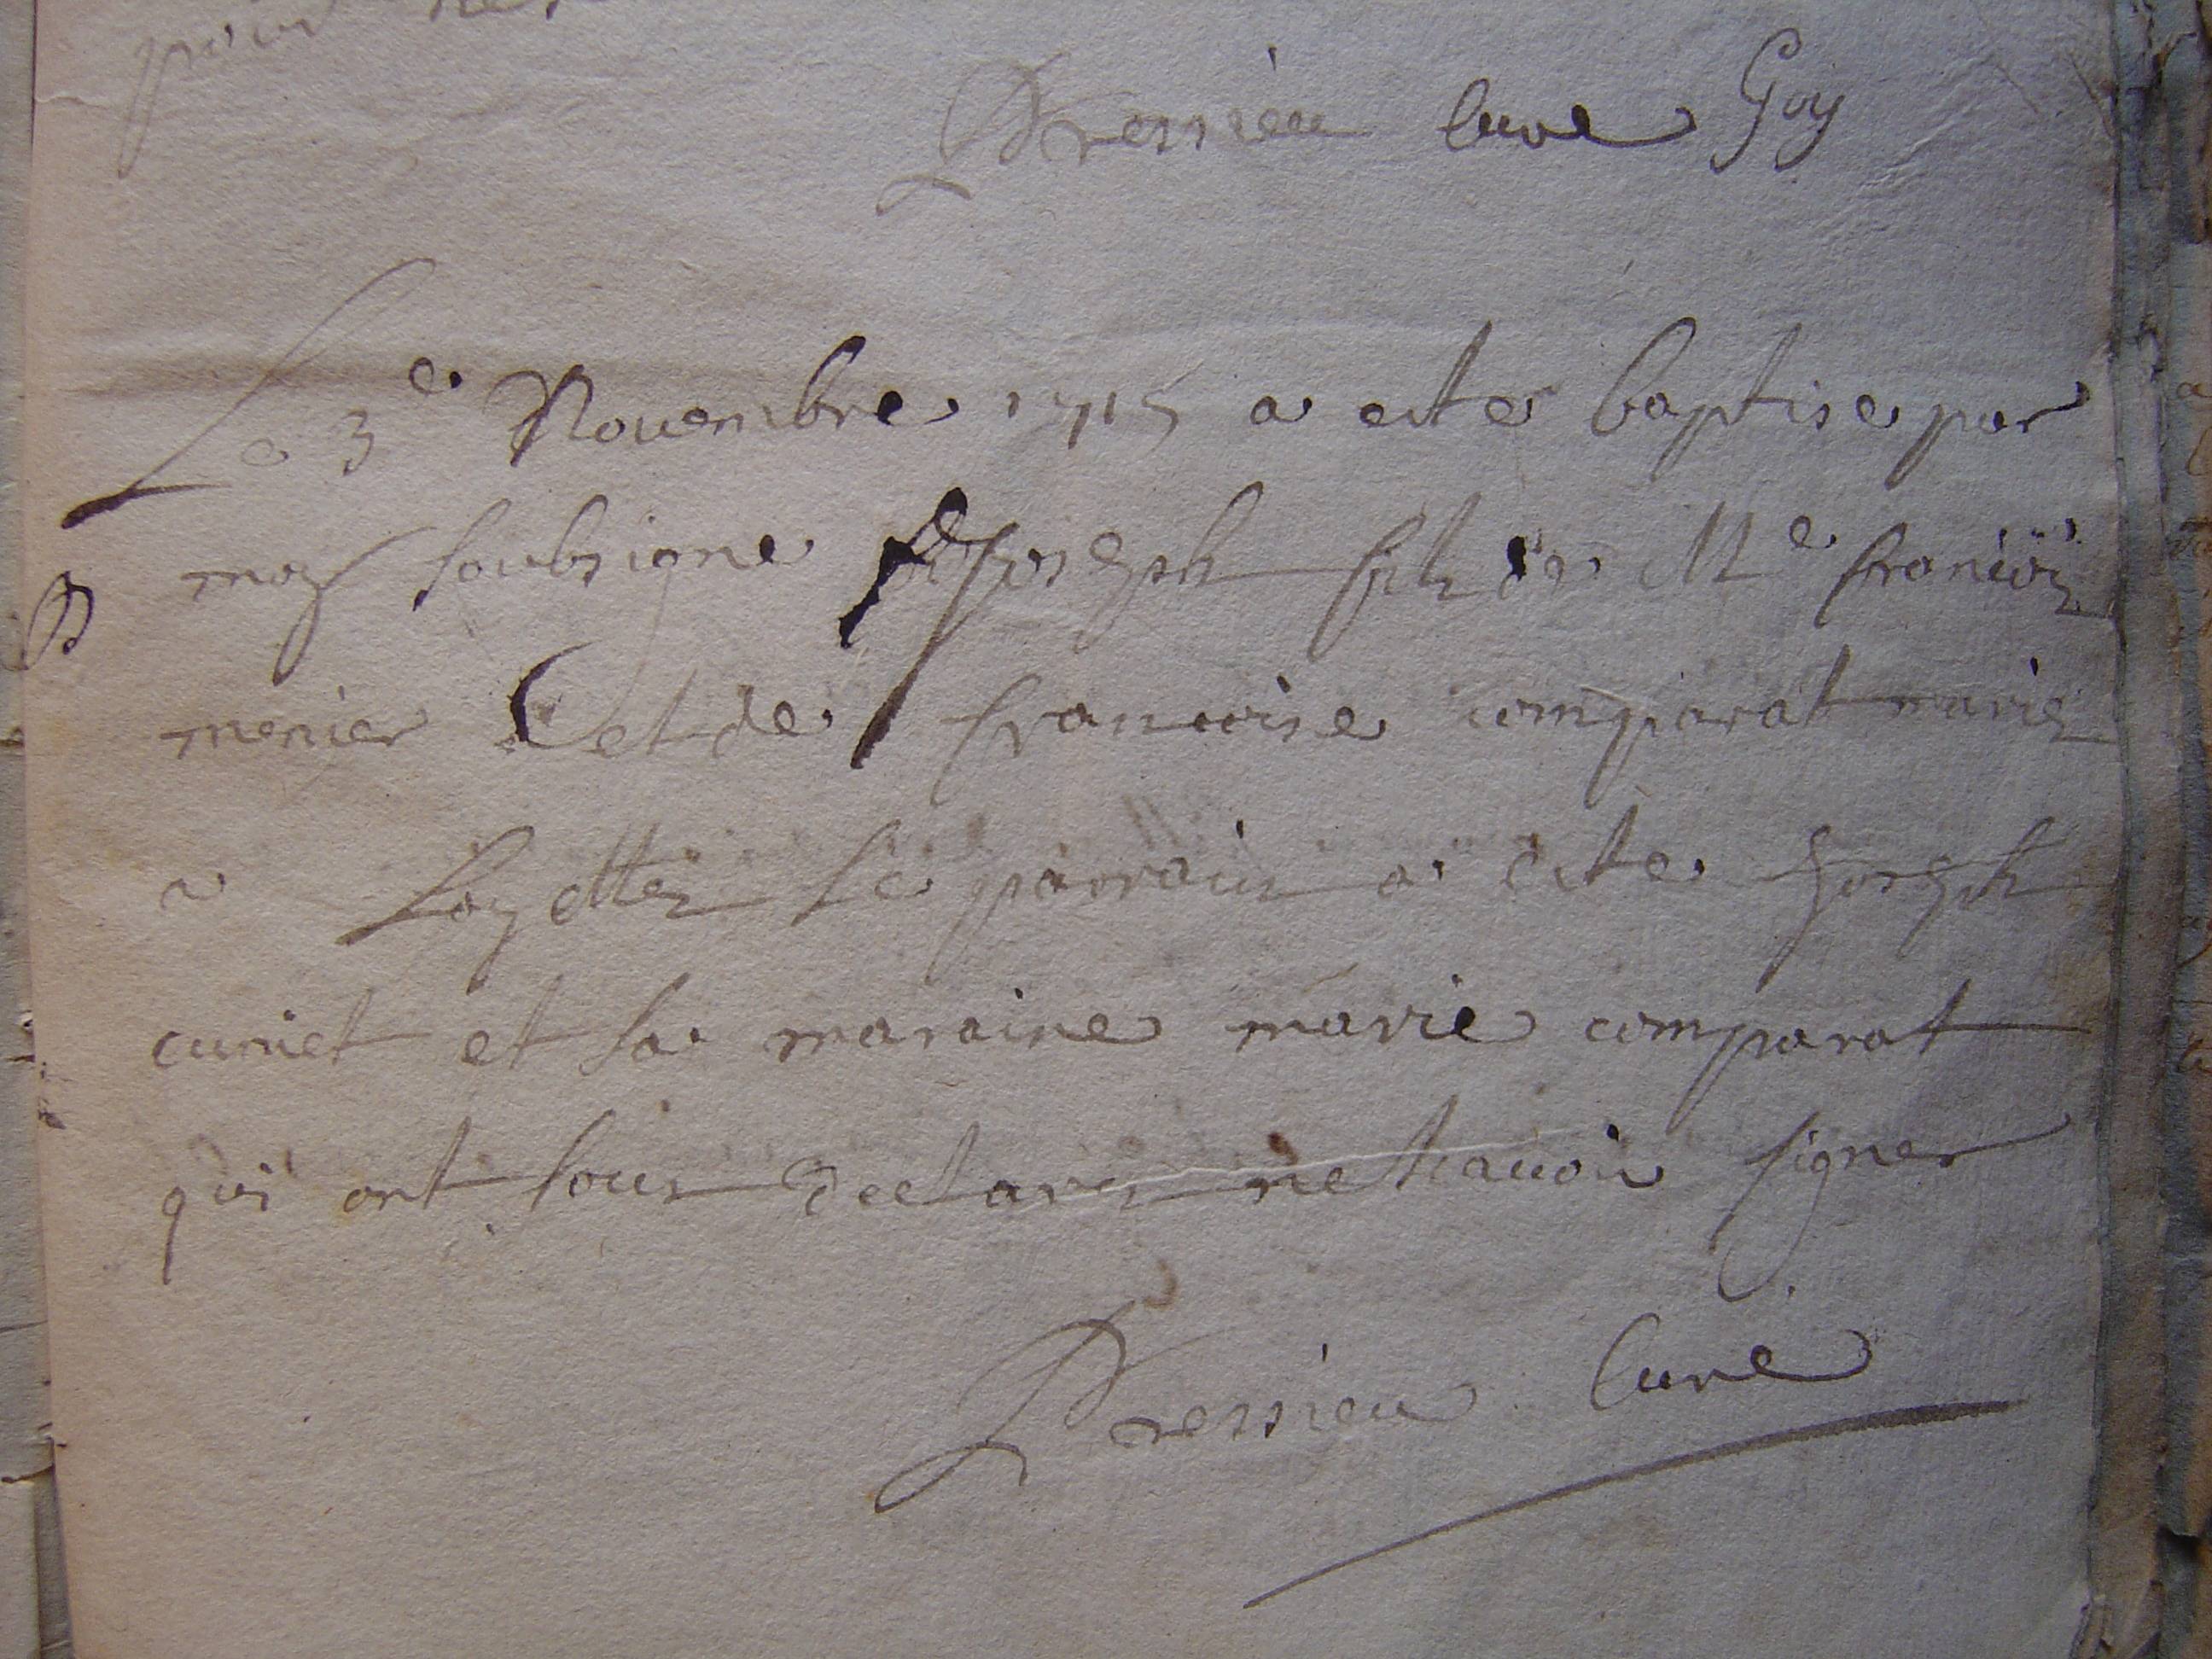 Dressieu Cure Goy
Le 3e Nouembre 1715 a este baptise par
B
moy soubsigne Joseph fils de Me francois
menier et de francoise comparat maries
a Loyettes le parrain a este Joseph
cuniet et la maraine marie comparat
qui ont tous declares ne scauoir signer
Dressieu Cure